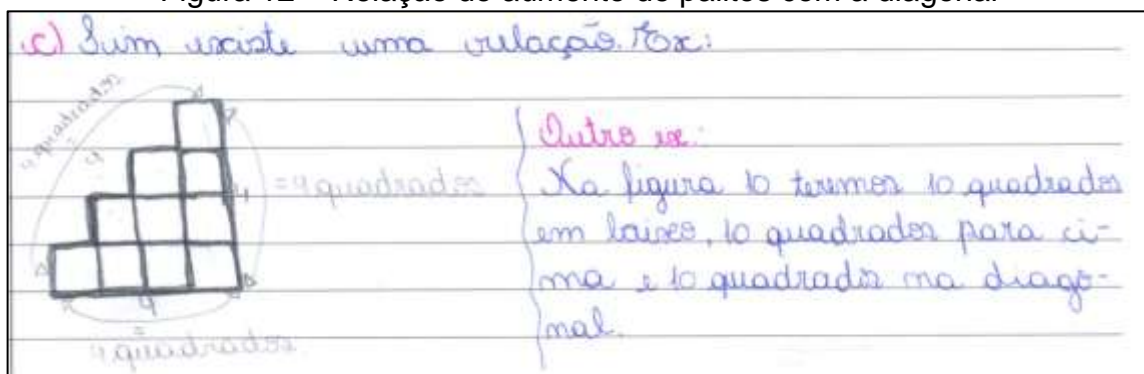 Figura 12 – Relação do aumento de palitos com a diagonal
c) Sim existe uma relação. Ex:
4 quadrados
=
4
4
= 4 quadrados
4
=
4 quadrados
Outro ex:
Na figura 10 teremos 10 quadrados
em baixo, 10 quadrados para ci-
ma e 10 quadrados na diago-
nal.